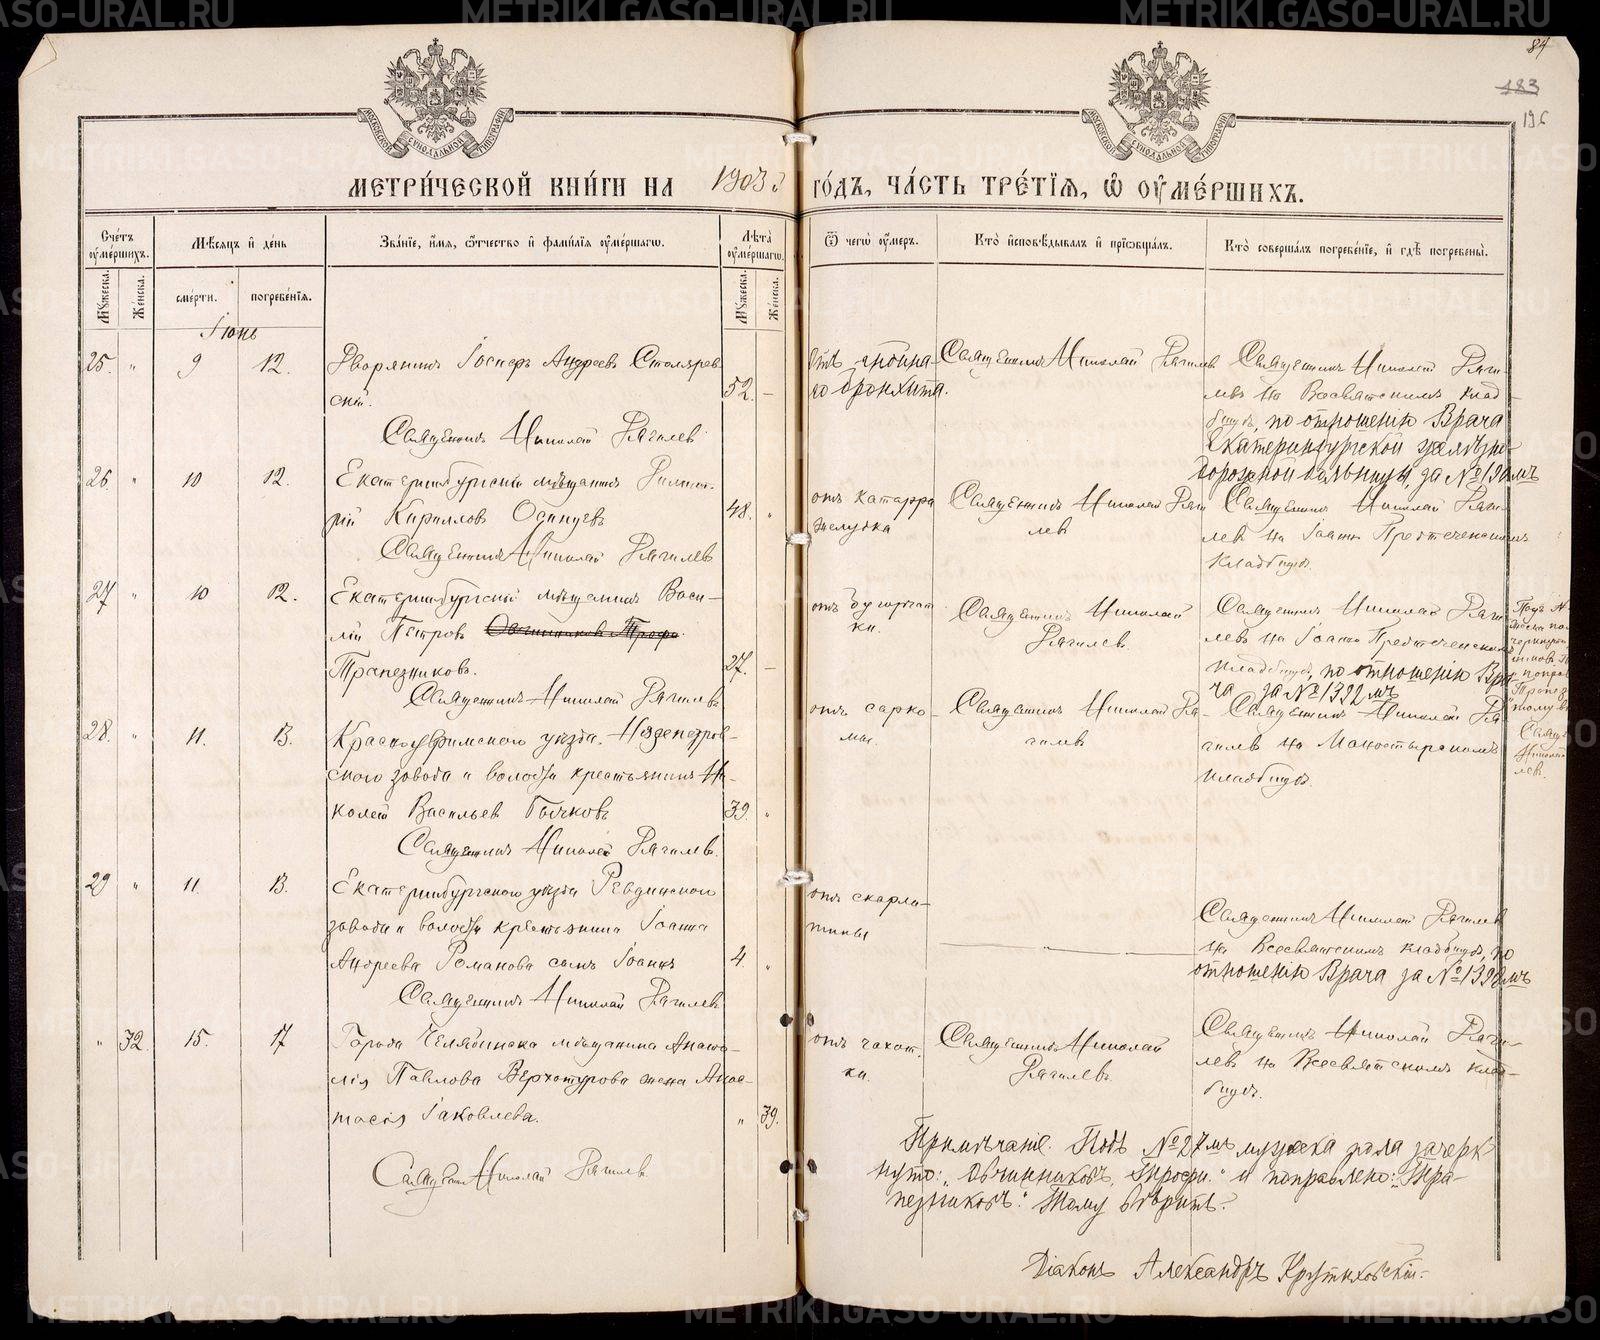 84
183
196
МОСКОВСКОЙ СѴНОДАЛЬНОЙ ТИПОГРАФІИ
МОСКОВСКОЙ СѴНОДАЛЬНОЙ ТИПОГРАФІИ
МЕТРИ́ЧЕСКОЙ КНИ́ГИ НА 1903 ГО́ДЪ, ЧА́СТЬ ТРЕ́ТІѦ, Ѽ ОУ҆МЕ́РШИХЪ.
Сче́тъ оу҆ме́ршихъ.
Мѣ́сѧцъ и҆ де́нь
Зва́нїе, и҆́мѧ, ѻ҆́тчество и҆ фами́лїѧ оу҆ме́ршагѡ.
Лѣ́та оу҆ме́ршагѡ.
Ѿ чегѡ̀ оу҆́меръ.
Кто̀ и҆сповѣ́дывалъ и҆ прїѡбща́лъ.
Кто̀ соверша́лъ погребе́нїе, и҆ гдѣ̀ погребены̀.
Мꙋ́жеска.
Же́нска.
сме́рти.
погребе́нїѧ.
Мꙋ́жеска.
Же́нска.
Іюнь
25. " 9 12. Дворянинъ Іосифъ Андреевъ Столярев-
скій. 52. —
Священникъ Николай Рягилев
отъ гнойна-
го бронхита.
Священникъ Николай Рягилев
Священникъ Николай Ряги-
левъ на Всесвятскомъ клад-
бищѣ, по отношенію Врача
Екатеринбургской желѣзно-
дорожной больницы, за №
26. " 10 12. Екатеринбургскій мѣщанинъ Димит-
рій Кирилловъ Осинцевъ 48. "
Священникъ Николай Рягилевъ
отъ катарра
желудка
Священникъ Николай Ряги
левъ
Священникъ Николай Ряги-
левъ на Іоанно Предтеченскомъ
кладбищѣ.
27 " 10 12. Екатеринбургскій мѣщанинъ Васи-
лій Петровъ Овчинниковъ Трофи.
Трапезниковъ. 27. —
Священникъ Николай Рягилевъ
отъ бугорчат
ки.
Священникъ Николай
Рягилевъ
Священникъ Николай Ряги-
левъ на Іоанно Предтеченскомъ
кладбищѣ, по отношенію Вра-
ча за № 1392 мъ
28. " 11. 13. Красноуфимскаго уѣзда. Нязепетров-
скаго завода и волости крестьянинъ Ни-
колай Васильев Бычковъ 39. "
Священникъ Николай Рягилевъ.
отъ сарко-
мы.
Священникъ Николай Ря-
гилевъ
Священникъ Николай Ря-
гилевъ на Монастырскомъ
кладбищѣ.
29 " 11. 13. Екатеринбургскаго уѣзда Ревдинскаго
завода и волости крестьянина Іоанна
Андреева Романова сынъ Іоаннъ 4. "
Священникъ Николай Рягилевъ
отъ скарла-
тины
Священникъ Николай Рягилевъ
на Всесвятскомъ кладбищѣ, по
отношенію Врача за №
" 32. 15. 17 Города Челябинска мѣщанина Анато-
лія Павлова Верхотурова жена Анас-
тасія Іаковлева. " 39.
Священникъ Николай Рягилевъ
отъ чахот.
ки.
Священникъ Николай
Рягилевъ
Священникъ Николай Ряги-
левъ на Всесвятскомъ клад-
бищѣ.
Примѣчаніе. Подъ № 27 мъ мужска пола зачерк
нуто: „Овчинниковъ, Трофи." и поправлено: „Тра-
пезниковъ." Тому вѣрить.
Діаконъ Александръ Крутиховскій.